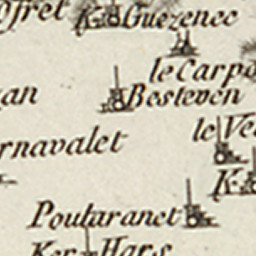 K Guezenec
le Carpo
Besteven
rnavalet
le Ve
K
Poutaranet
Ker Hars